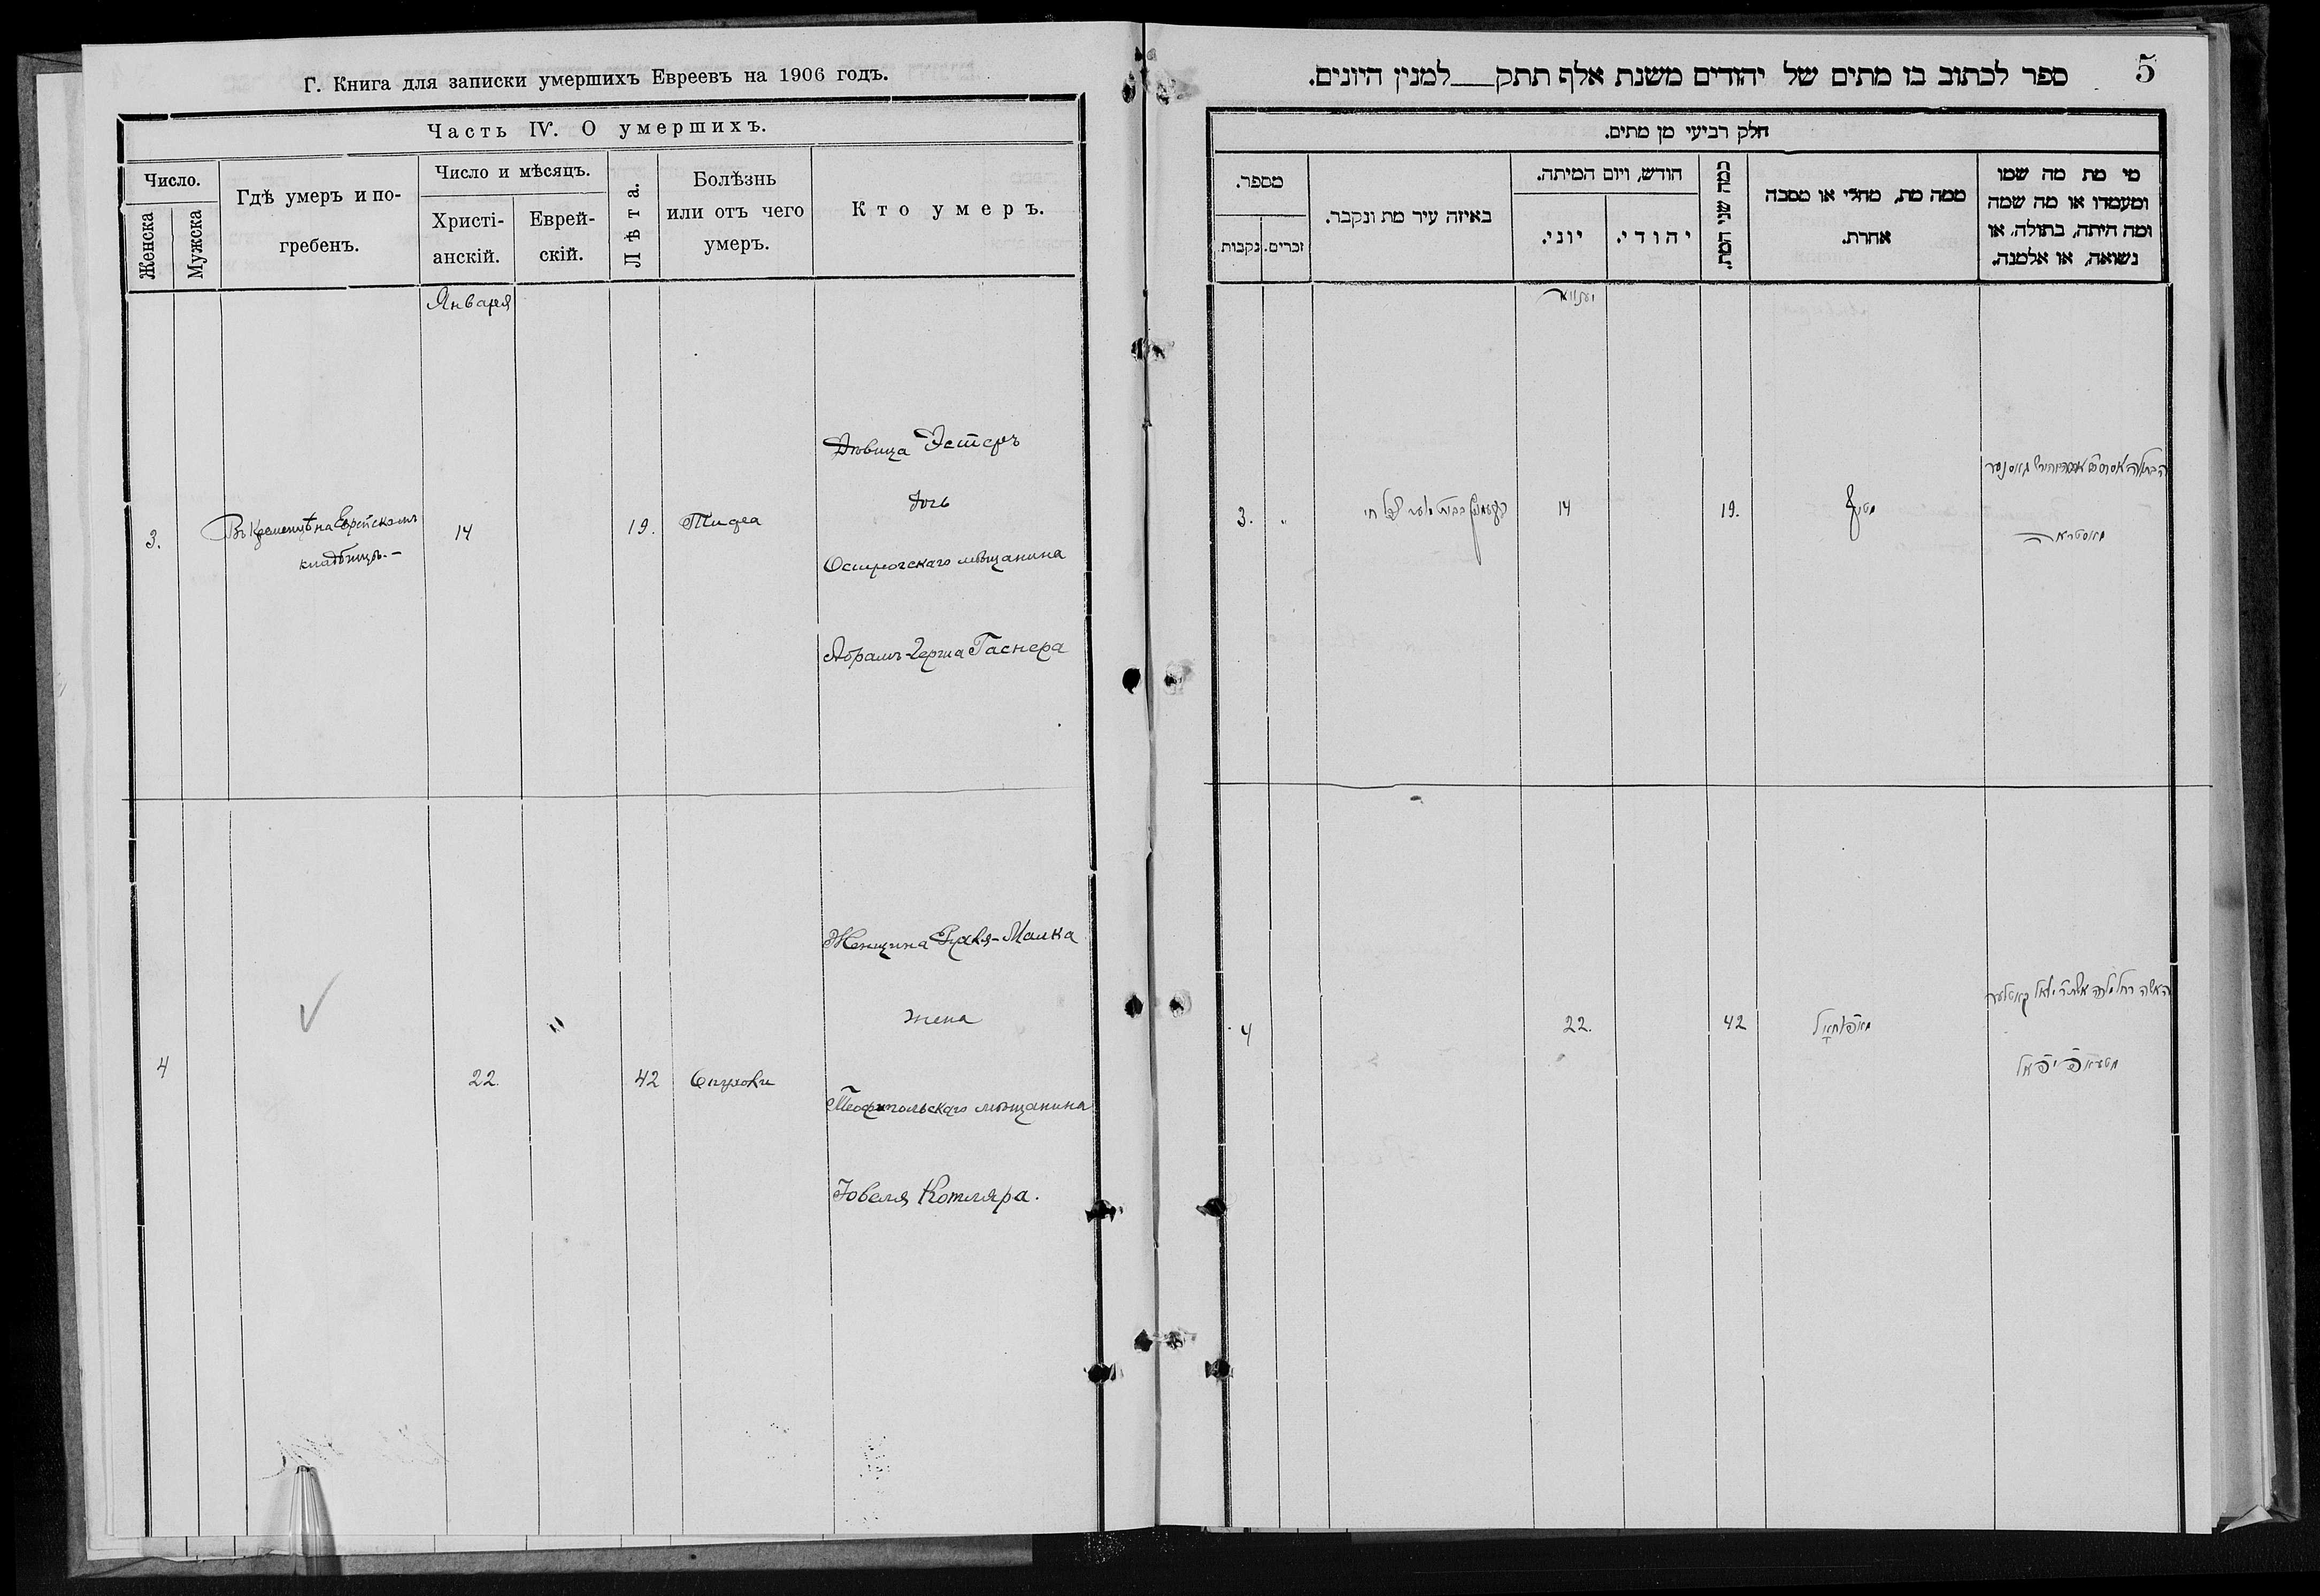 Г. Книга для записки умершихъ Евреевъ на 1906 годъ.
Часть IV. О умершихъ.
Число.
Женска
Мужска
Гдѣ умеръ и по-
гребенъ.
Число и мѣсяцъ.
Христі-
анскій.
Еврей-
скій.
Лѣта.
Болѣзнь
или отъ чего
умеръ.
Кто умеръ.
Января
3.
Въ Кременцѣ на Еврейскомъ
кладбищѣ.–
14
19.
Тифа
Дѣвица Эстеръ
дочь
Острогского мѣщанина
Абрамъ-Герша Гаснера
4
22.
"
42
Женщина Рахля-Малка
жена
Теофипольскаго мѣщанина
Іовеля Котляра.
5
ספר לכתוב בו מתים של יהודים משנת אלף תתק___למנין היונים.
חלק רביעי מן מתים.
מספר.
נקבות
זכרים.
באיזה עיר מת ונקבר.
חודש, ויום המיתה.
יוני.
יהודי.
כמה שני המת.
ממה מת, מחלי או מסבה
אחרת.
מי מת מה שמו
ומעמדו או מה שמה
ומה היתה, בתולה, או
נשואה, או אלמנה.
3.
"
14
19.
טיף
הבתולה
גאסנער
4
22.
42
האשה רחל מלכה
קאטלער